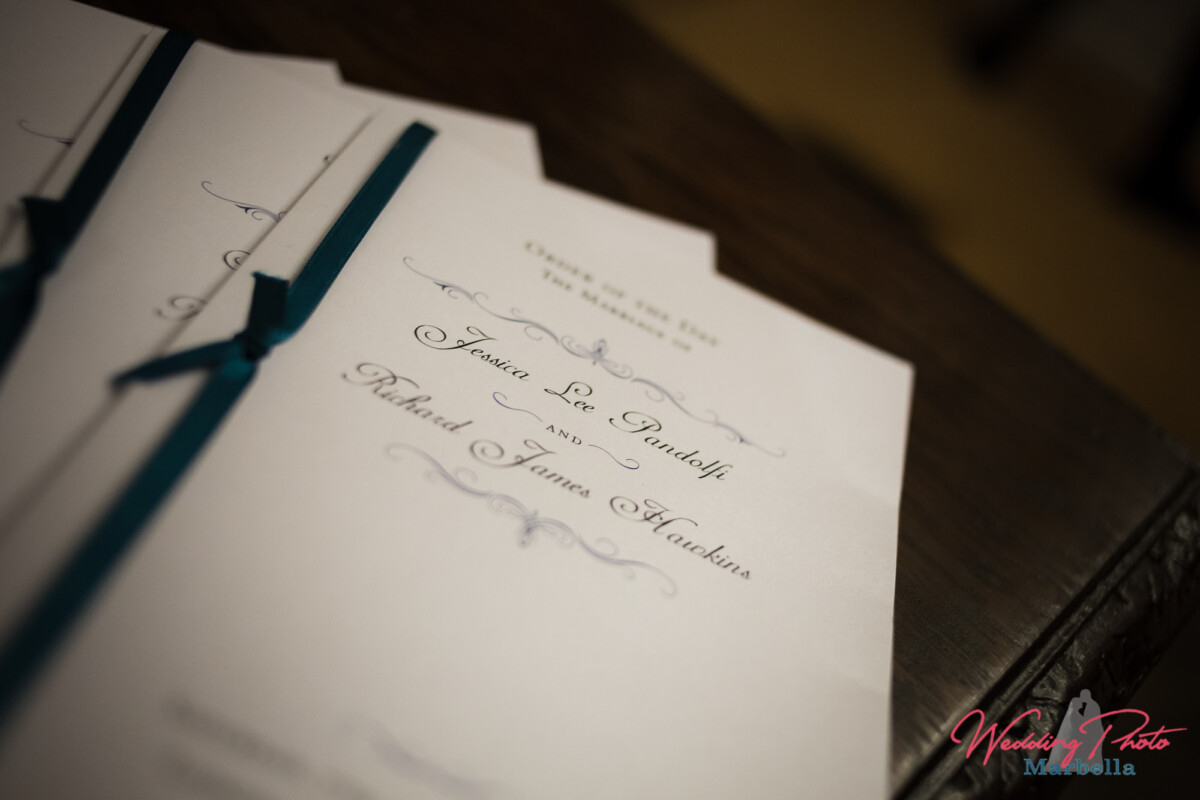 Order of the Day
The Marriage of
Jessica Lee Pandolfi
AND
Richard James Hawkins
Wedding Photo
Marbella